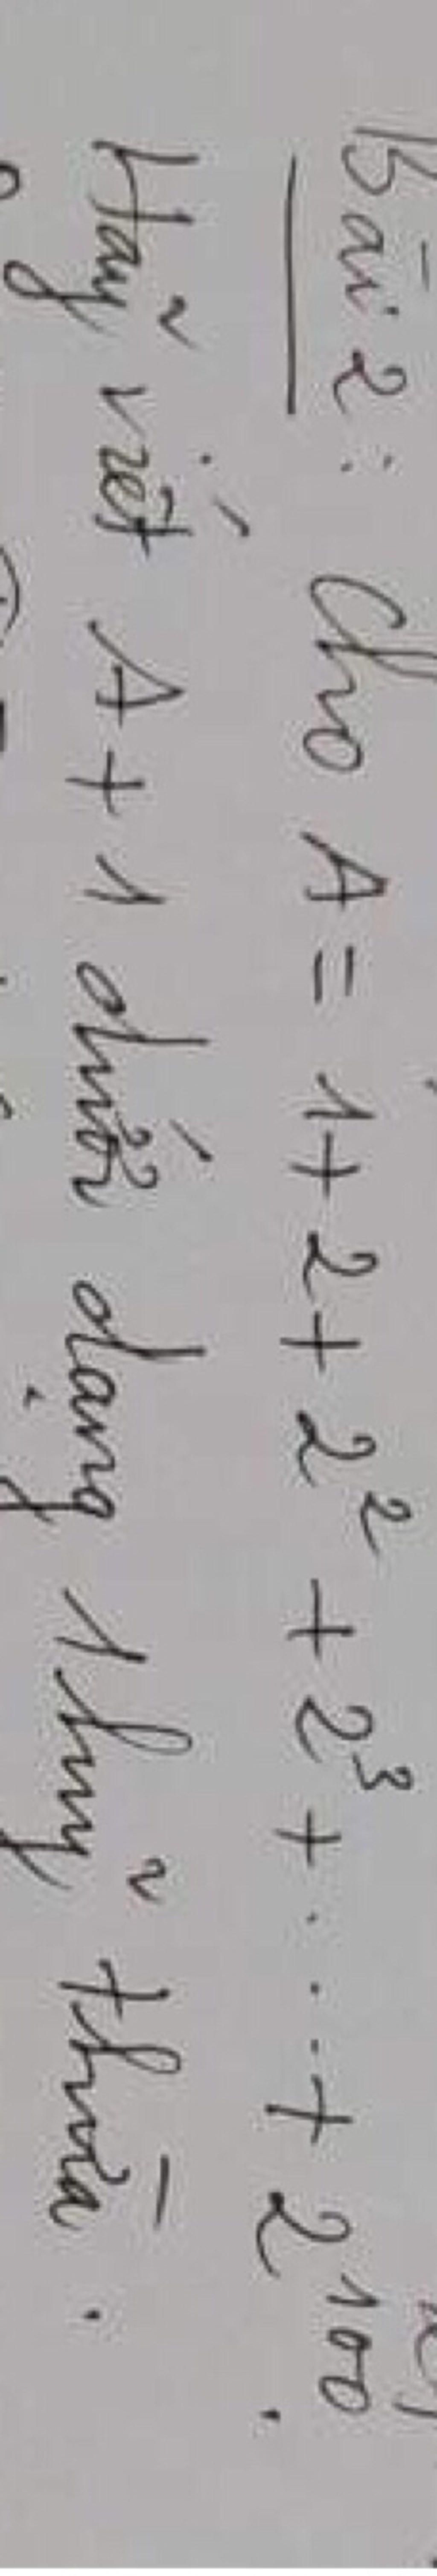 Bài 2: Cho A = 1 + 2 + 2² + 2³ + .... + 2¹⁰⁰.
Hãy viết A + 1 dưới dạng lũy thừa.